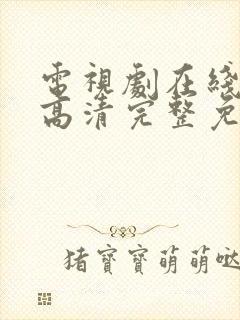 電視劇在綫
高清完整免
猪寶寶萌萌噠